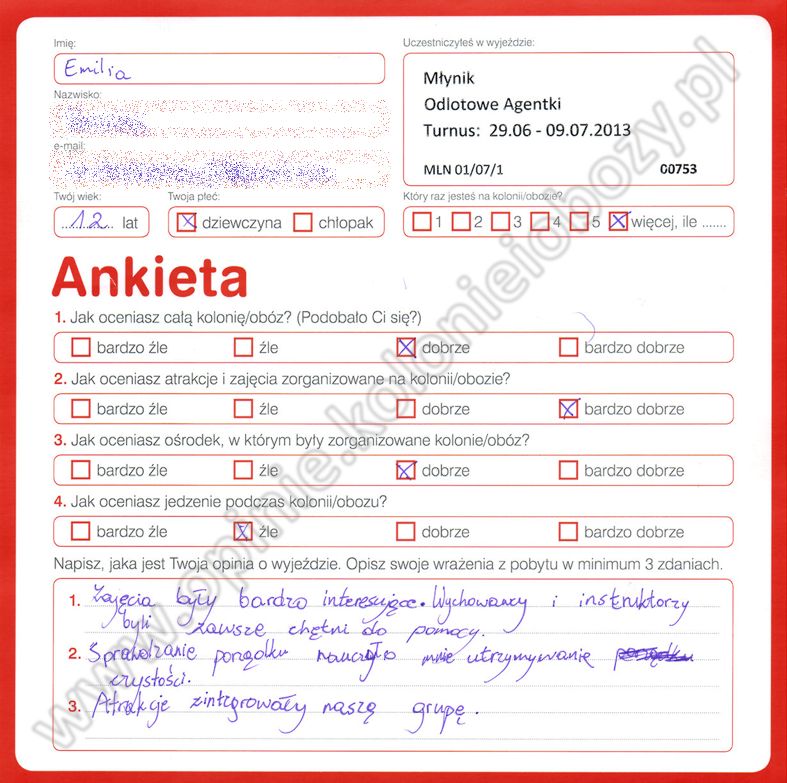 Imię:
Emilia
Nazwisko:
e-mail:
Twój wiek:
12 lat
Twoja płeć:
dziewczyna chłopak
Uczestniczyłeś w wyjeździe:
Młynik
Odlotowe Agentki
Turnus: 29.06 - 09.07.2013
MLN 01/07/1 00753
Który raz jesteś na kolonii/obozie?
1 2 3 4 5 więcej, ile .......
Ankieta
1. Jak oceniasz całą kolonię/obóz? (Podobało Ci się?)
bardzo źle źle dobrze bardzo dobrze
2. Jak oceniasz atrakcje i zajęcia zorganizowane na kolonii/obozie?
bardzo źle źle dobrze bardzo dobrze
3. Jak oceniasz ośrodek, w którym były zorganizowane kolonie/obóz?
bardzo źle źle dobrze bardzo dobrze
4. Jak oceniasz jedzenie podczas kolonii/obozu?
bardzo źle źle dobrze bardzo dobrze
Napisz, jaka jest Twoja opinia o wyjeździe. Opisz swoje wrażenia z pobytu w minimum 3 zdaniach.
1. Zajęcia były bardzo interesujące. Wychowawcy i instruktorzy
byli zawsze chętni do pomocy.
2. Sprawdzanie porządku nauczyło mnie utrzymywanie
czystości.
3. Atrakcje zintegrowały naszą grupę.
www.opinie.kolonieiobozy.pl